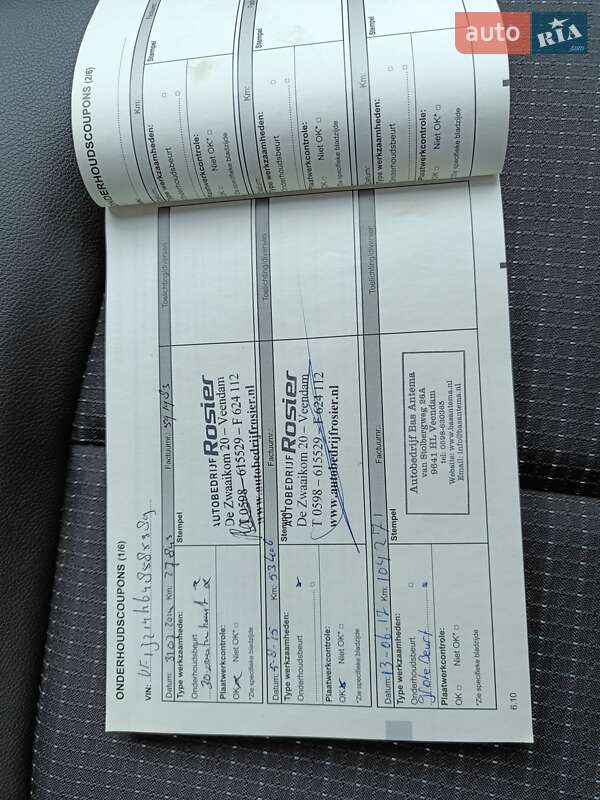 auto RIA.com
ONDERHOUDSCOUPONS (2/6)
Km:
Stempel
Type werkzaamheden:
Onderhoudsbeurt
Plaatwerkcontrole:
OK Niet OK*
*Zie specifieke bladzijde
Km:
Stempel
Type werkzaamheden:
Onderhoudsbeurt
Plaatwerkcontrole:
OK Niet OK*
*Zie specifieke bladzijde
Km:
Stempel
Type werkzaamheden:
Onderhoudsbeurt
Plaatwerkcontrole:
OK Niet OK*
*Zie specifieke bladzijde
ONDERHOUDSCOUPONS (1/6)
VIN:
Datum: Km: 27843 Factuurnr.: Toelichting/diversen
Type werkzaamheden:
Stempel
Onderhoudsbeurt
Plaatwerkcontrole:
OK Niet OK*
*Zie specifieke bladzijde
AUTOBEDRIJF Rosier
De Zwaaikom 20 – Veendam
T 0598 – 615529 – F 624 112
www.autobedrijfrosier.nl
Datum: Km: 53406 Factuurnr.: Toelichting/diversen
Type werkzaamheden:
Stempel
Onderhoudsbeurt
Plaatwerkcontrole:
OK Niet OK*
*Zie specifieke bladzijde
AUTOBEDRIJF Rosier
De Zwaaikom 20 – Veendam
T 0598 – 615529 – F 624 112
www.autobedrijfrosier.nl
Datum: 13-06-17 Km: 104271 Factuurnr.: Toelichting/diversen
Type werkzaamheden:
Stempel
Onderhoudsbeurt
Grote Beurt
Plaatwerkcontrole:
OK Niet OK*
*Zie specifieke bladzijde
Autobedrijf Bas Antema
van Stolbergweg 26A
9641 HL Veendam
Website: www.basantema.nl
Email: info@basantema.nl
6.10